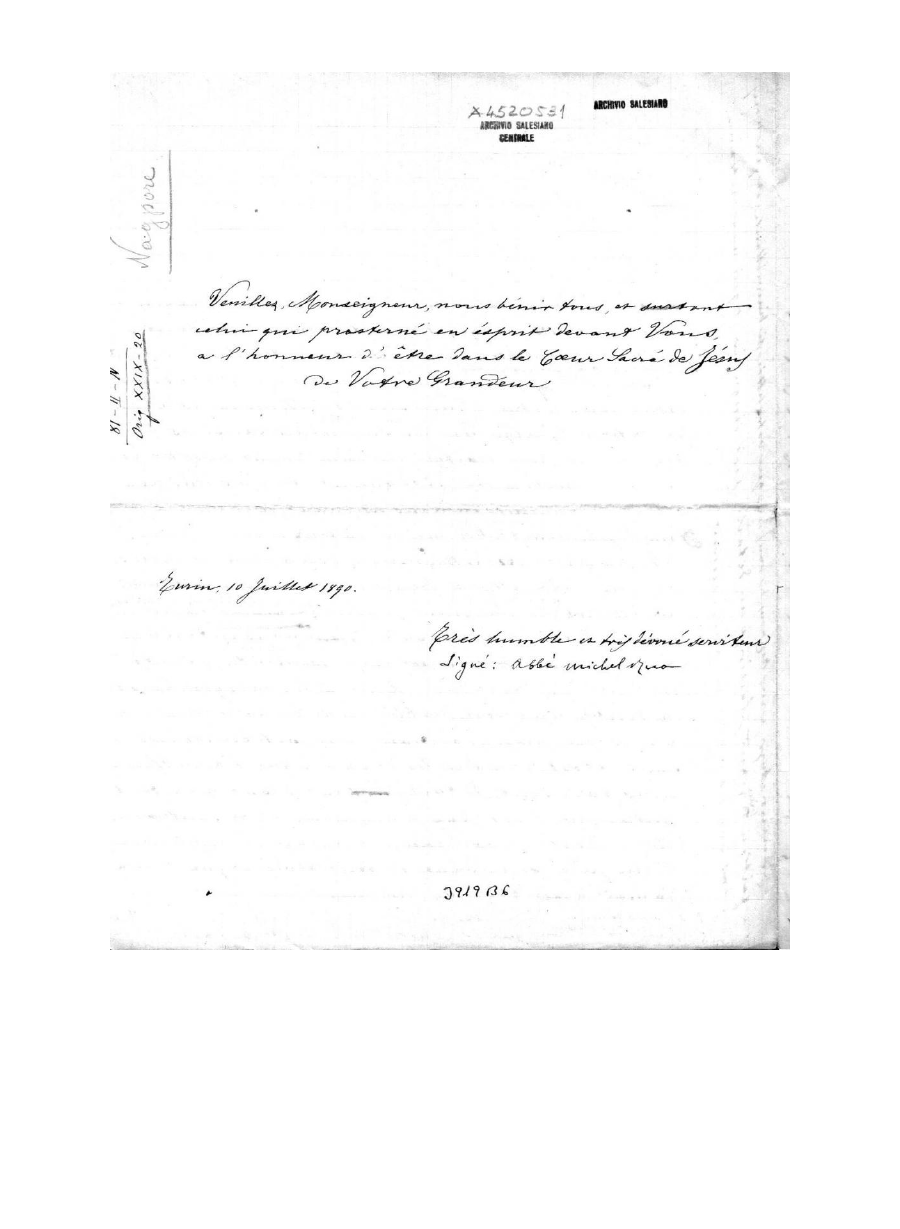 A4520531
ARCHIVIO SALESIANO
CENTRALE
ARCHIVIO SALESIANO
Nagpore
81-II-N
Orig XXIX-20
Veuillez, Monseigneur, nous bénir tous, et surtout
celui qui prosterné en ésprit devant Vous,
a l'honneur d'être dans le Cœur Sacré de Jésus
de Votre Grandeur
Turin, 10 Juillet 1890.
Très humble et très dévoué serviteur
Signé: Abbé Michel Rua
3919B6